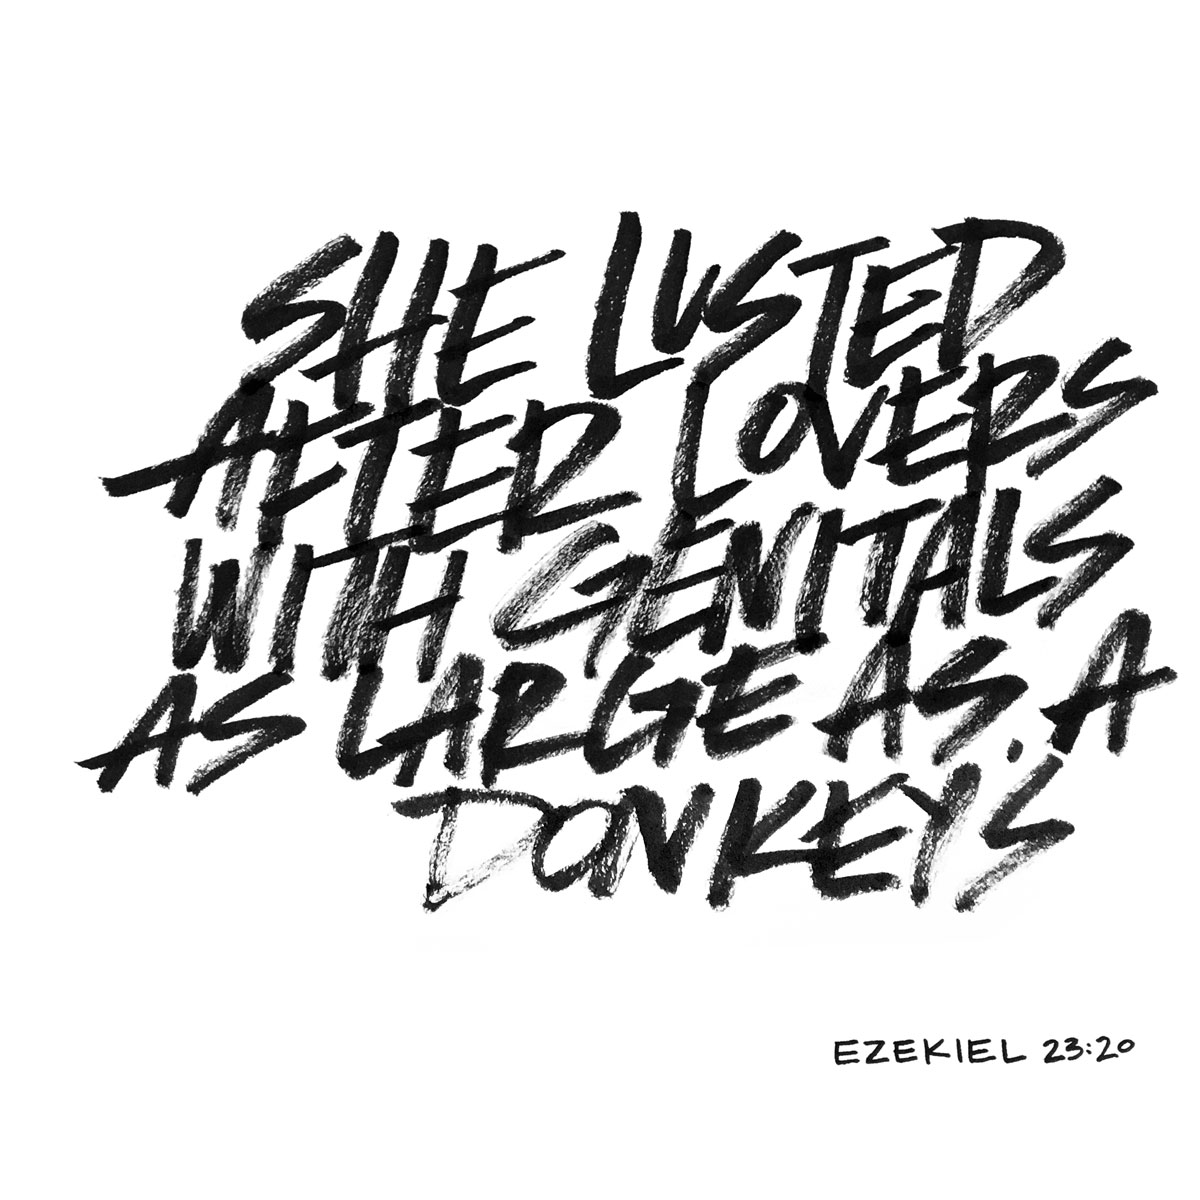 SHE LUSTED
AFTER LOVERS
WITH GENITALS
AS LARGE AS A
DONKEY'S
EZEKIEL 23:20